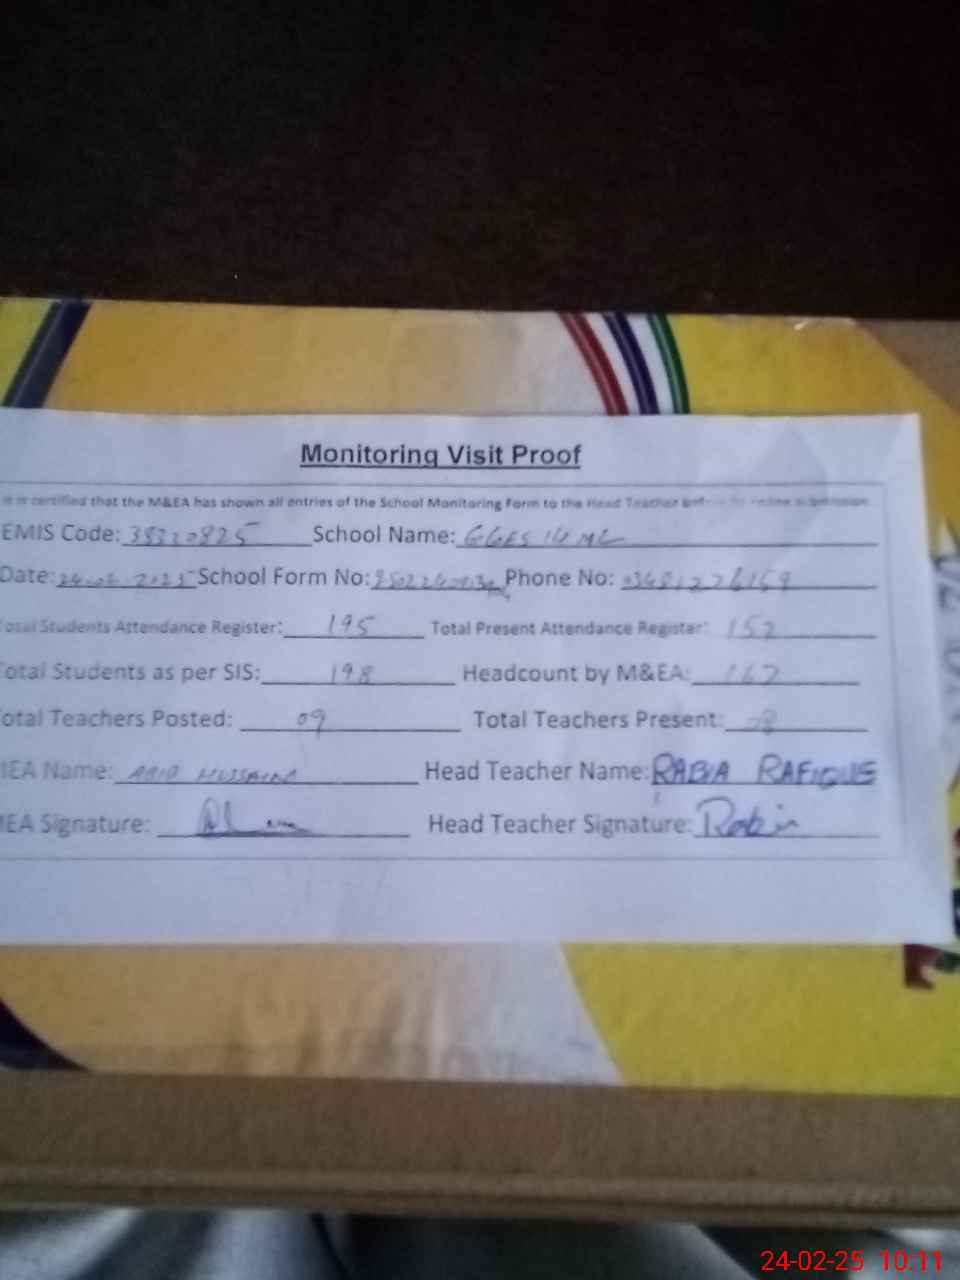 Monitoring Visit Proof
It is certified that the M&EA has shown all entries of the School Monitoring Form to the Head Teacher before its online submission.
EMIS Code: School Name: GGES
Date: School Form No: Phone No:
Total Students Attendance Register: 195 Total Present Attendance Register: 152
Total Students as per SIS: 198 Headcount by M&EA: 167
Total Teachers Posted: 09 Total Teachers Present: 08
MEA Name: HUSSAIN Head Teacher Name: RABIA RAFIQUE
MEA Signature: Head Teacher Signature: Rabia
24-02-25 10:11